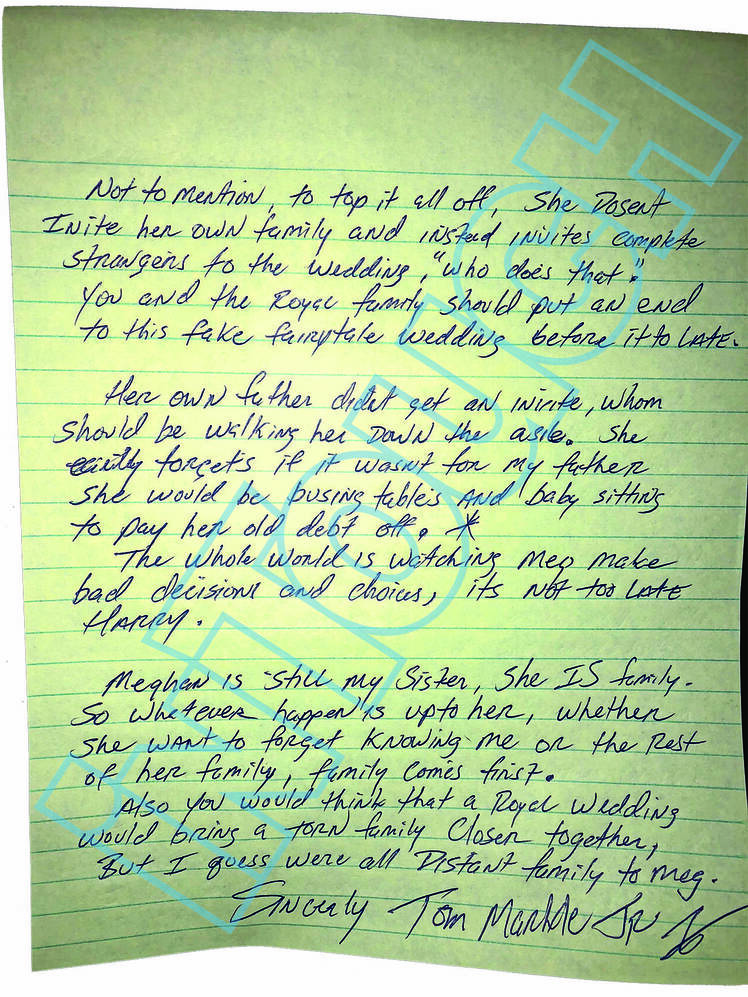 Not to mention, to top it all off, She Dosent
Invite her own family and instead invites complete
strangers to the wedding, "who does that".
You and the Royal family should put an end
to this fake fairytale wedding before it to LATE.
Her own father didnt get an invite, whom
should be walking her DOWN the asile. She
forgets if it wasn't for my father
She would be busing tables AND baby sitting
to pay her old debt off. *
The whole world is watching Meg make
bad decisions and choices, its NOT too LATE
HARRY.
Meghan is still my Sister, She IS family.
So whatever happen is upto her, whether
She WANT to forget knowing me or the Rest
of her family, family comes first.
Also you would think that a Royal wedding
would bring a TORN family closer together,
But I guess were all Distant family to Meg.
Sincerly Tom Markle Jr
IN TOUCH